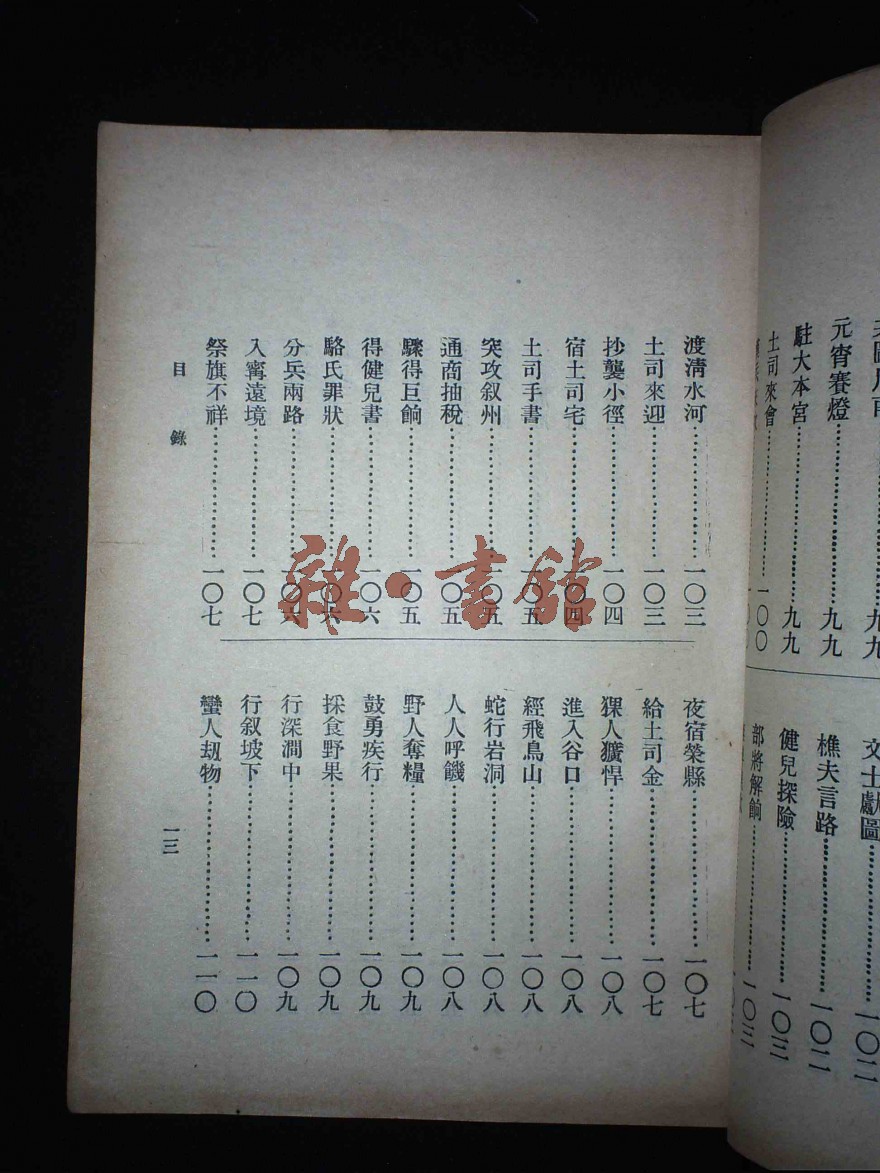 文士獻圖……一〇二
元宵賽燈……九九
樵夫言路……一〇二
駐大本宮……九九
健兒探險……一〇三
土司來會……一〇〇
部將解餉……一〇三
渡淸水河……一〇三
土司來迎……一〇三
抄襲小徑……一〇四
宿土司宅……一〇四
土司手書……一〇五
突攻叙州……一〇五
通商抽稅……一〇五
驟得巨餉……一〇五
得健兒書……一〇六
駱氏罪狀……一〇六
分兵兩路……一〇六
入甯遠境……一〇七
祭旗不祥……一〇七
夜宿榮縣……一〇七
給土司金……一〇七
猓人獷悍……一〇八
進入谷口……一〇八
經飛鳥山……一〇八
蛇行岩洞……一〇八
人人呼饑……一〇八
野人奪糧……一〇九
鼓勇疾行……一〇九
採食野果……一〇九
行深澗中……一〇九
行叙坡下……一一〇
蠻人刼物……一一〇
目錄
一三
雜·書館